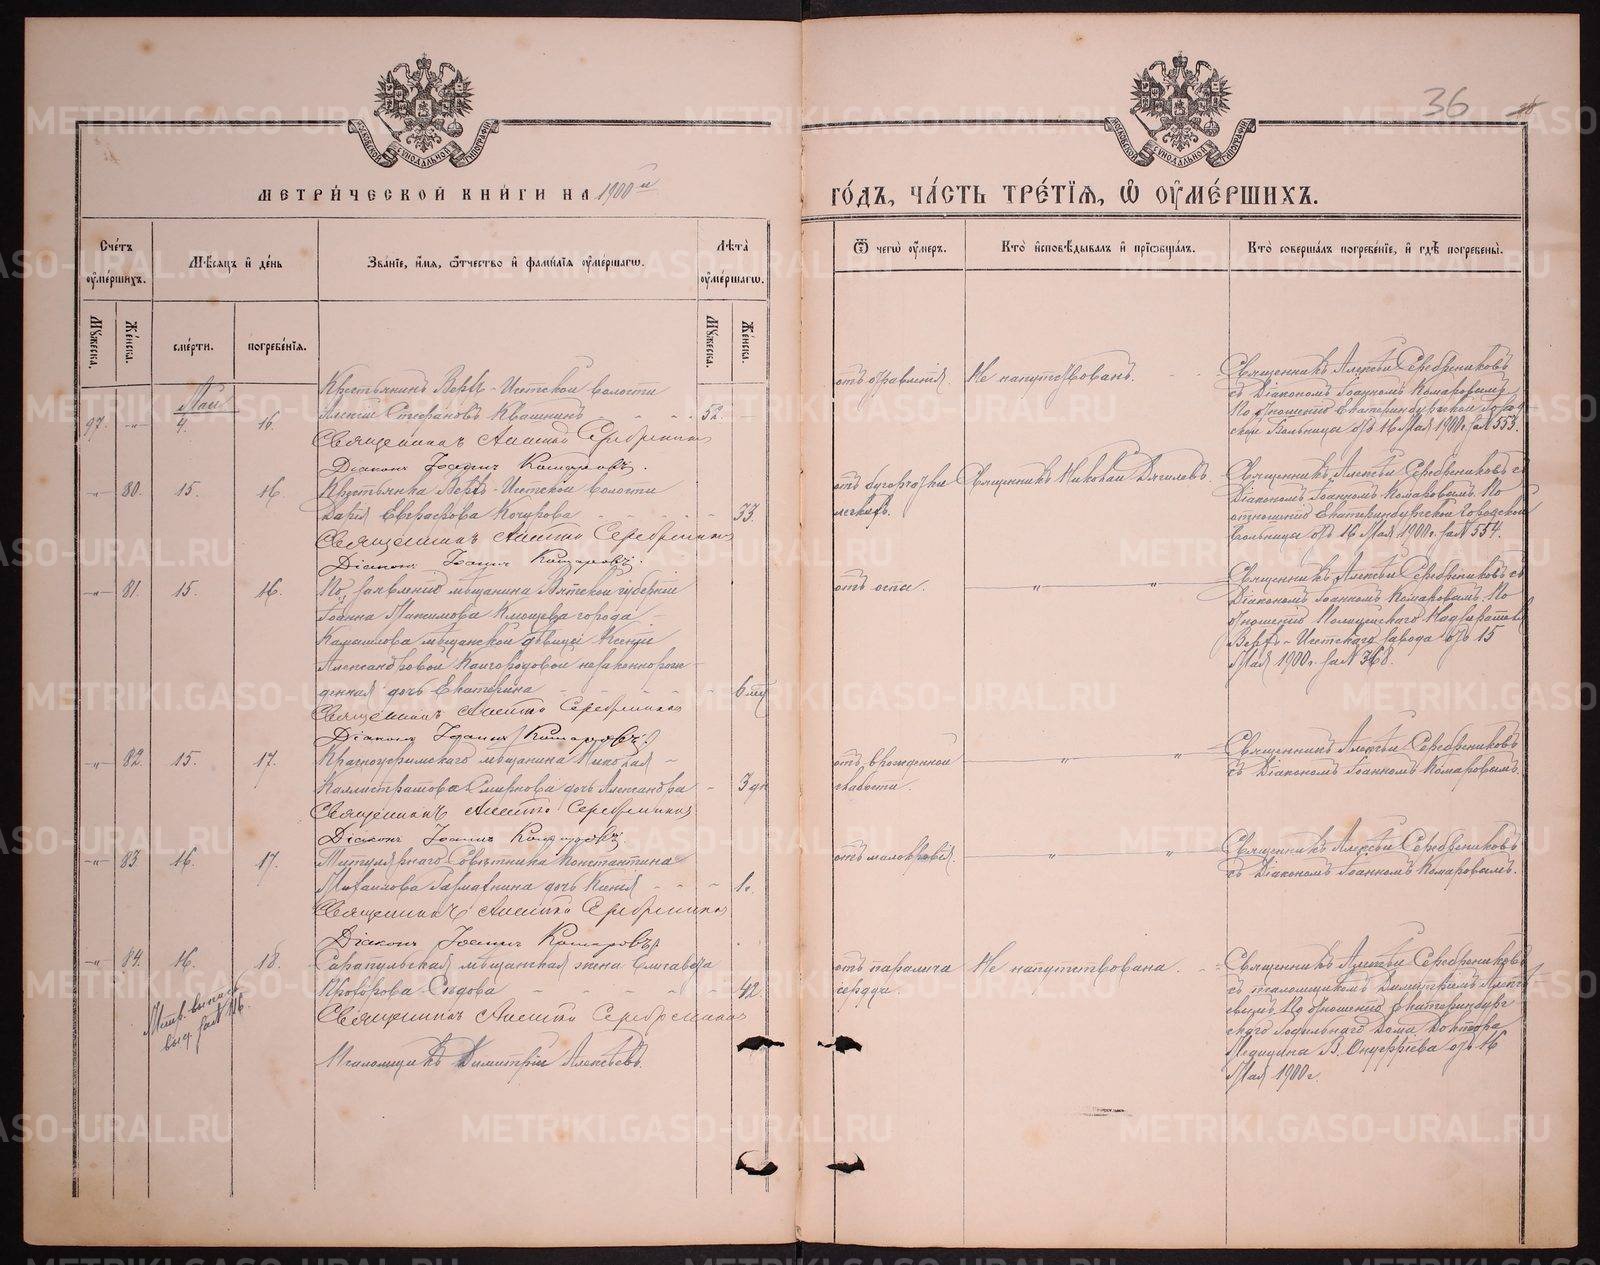 36
МЕТРИ́ЧЕСКОЙ КНИ́ГИ НА 1900 й
ГО́ДЪ, ЧА́СТЬ ТРЕ́ТІѦ, Ѡ҆ ОУ҆МЕ́РШИХЪ.
Сче́тъ оу҆ме́ршихъ.
Мѣ́сяцъ и҆ де́нь
Зва́нїе, и҆́мя, ѻ҆́тчество и҆ фами́лїя оу҆ме́ршагѡ.
Лѣ́та оу҆ме́ршагѡ.
Ѿ чегѡ̀ оу҆́меръ.
Кто̀ и҆сповѣ́дывалъ и҆ прїѡбща́лъ.
Кто̀ соверша́лъ погребе́нїе, и҆ гдѣ̀ погребены̀.
Мꙋ́жеска.
Же́нска.
сме́рти.
погребе́нїя.
Мꙋ́жеска.
Же́нска.
Май
97. -"- 4. 16.
Крестьянинъ Верхъ-Исетской волости
Алексѣй Стефановъ Квашнинъ 52.
Священникъ Алексѣй Серебренниковъ
Діаконъ Іоаннъ Комаровъ.
отъ отравленія.
Не напутствованъ.
Священникъ Алексѣй Серебрениковъ
съ Діакономъ Іоанномъ Комаровымъ
По отношенію Екатеринбургской Город
ской больницы отъ 16 Мая 1900 г. за № 553.
-"- 80. 15. 16.
Крестьянка Верхъ-Исетской волости
Дарія Евграфова Кочурова 33.
Священникъ Алексѣй Серебренниковъ
Діаконъ Іоаннъ Комаровъ.
отъ бугорчатки
легкихъ.
Священникъ Николай
Священникъ Алексѣй Серебрениковъ съ
Діакономъ Іоанномъ Комаровымъ. По
отношенію Екатеринбургской Городской
больницы отъ 16 Мая 1900 г. за № 554.
-"- 81. 15. 16.
По заявленію мѣщанина Вятской губерніи
Іоанна Максимова города
Камышлова мѣщанской дѣвицы Ксеніи
Александровой Кайгородовой незаконнорож-
денная дочь Екатерина 6 мц
Священникъ Алексѣй Серебренниковъ
Діаконъ Іоаннъ Комаровъ.
отъ оспы.
Священникъ Алексѣй Серебрениковъ съ
Діакономъ Іоанномъ Комаровымъ. По
отношенію Полицейскаго Надзирателя
Верхъ-Исетскаго завода отъ 15
Мая 1900 г. за № 368.
-"- 82. 15. 17.
Красноуфимскаго мѣщанина Николая
Каллистратова Смирнова дочь Александра 3 дн
Священникъ Алексѣй Серебренниковъ
Діаконъ Іоаннъ Комаровъ.
отъ врожденной
слабости.
Священникъ Алексѣй Серебрениковъ
съ Діакономъ Іоанномъ Комаровымъ.
-"- 83. 16. 17.
Титулярнаго Совѣтника Константина
Михайлова дочь 1.
Священникъ Алексѣй Серебренниковъ
Діаконъ Іоаннъ Комаровъ.
отъ малокровія.
Священникъ Алексѣй Серебрениковъ
съ Діакономъ Іоанномъ Комаровымъ.
-"- 84. 16. 18.
Сарапульская мѣщанская жена Елисавета
Сѣдова 42.
Священникъ Алексѣй Серебренниковъ
Псаломщикъ Димитрій Алексѣевъ.
отъ паралича
сердца.
Не напутствована.
Священникъ Алексѣй Серебрениковъ
съ псаломщикомъ Димитріемъ Алексѣ
евымъ. По отношенію Екатеринбург
скаго Родильнаго Дома Доктора
Медицины В. Онуфріева отъ 16
Мая 1900 г.
Метр. выпись
выд. за № 116.